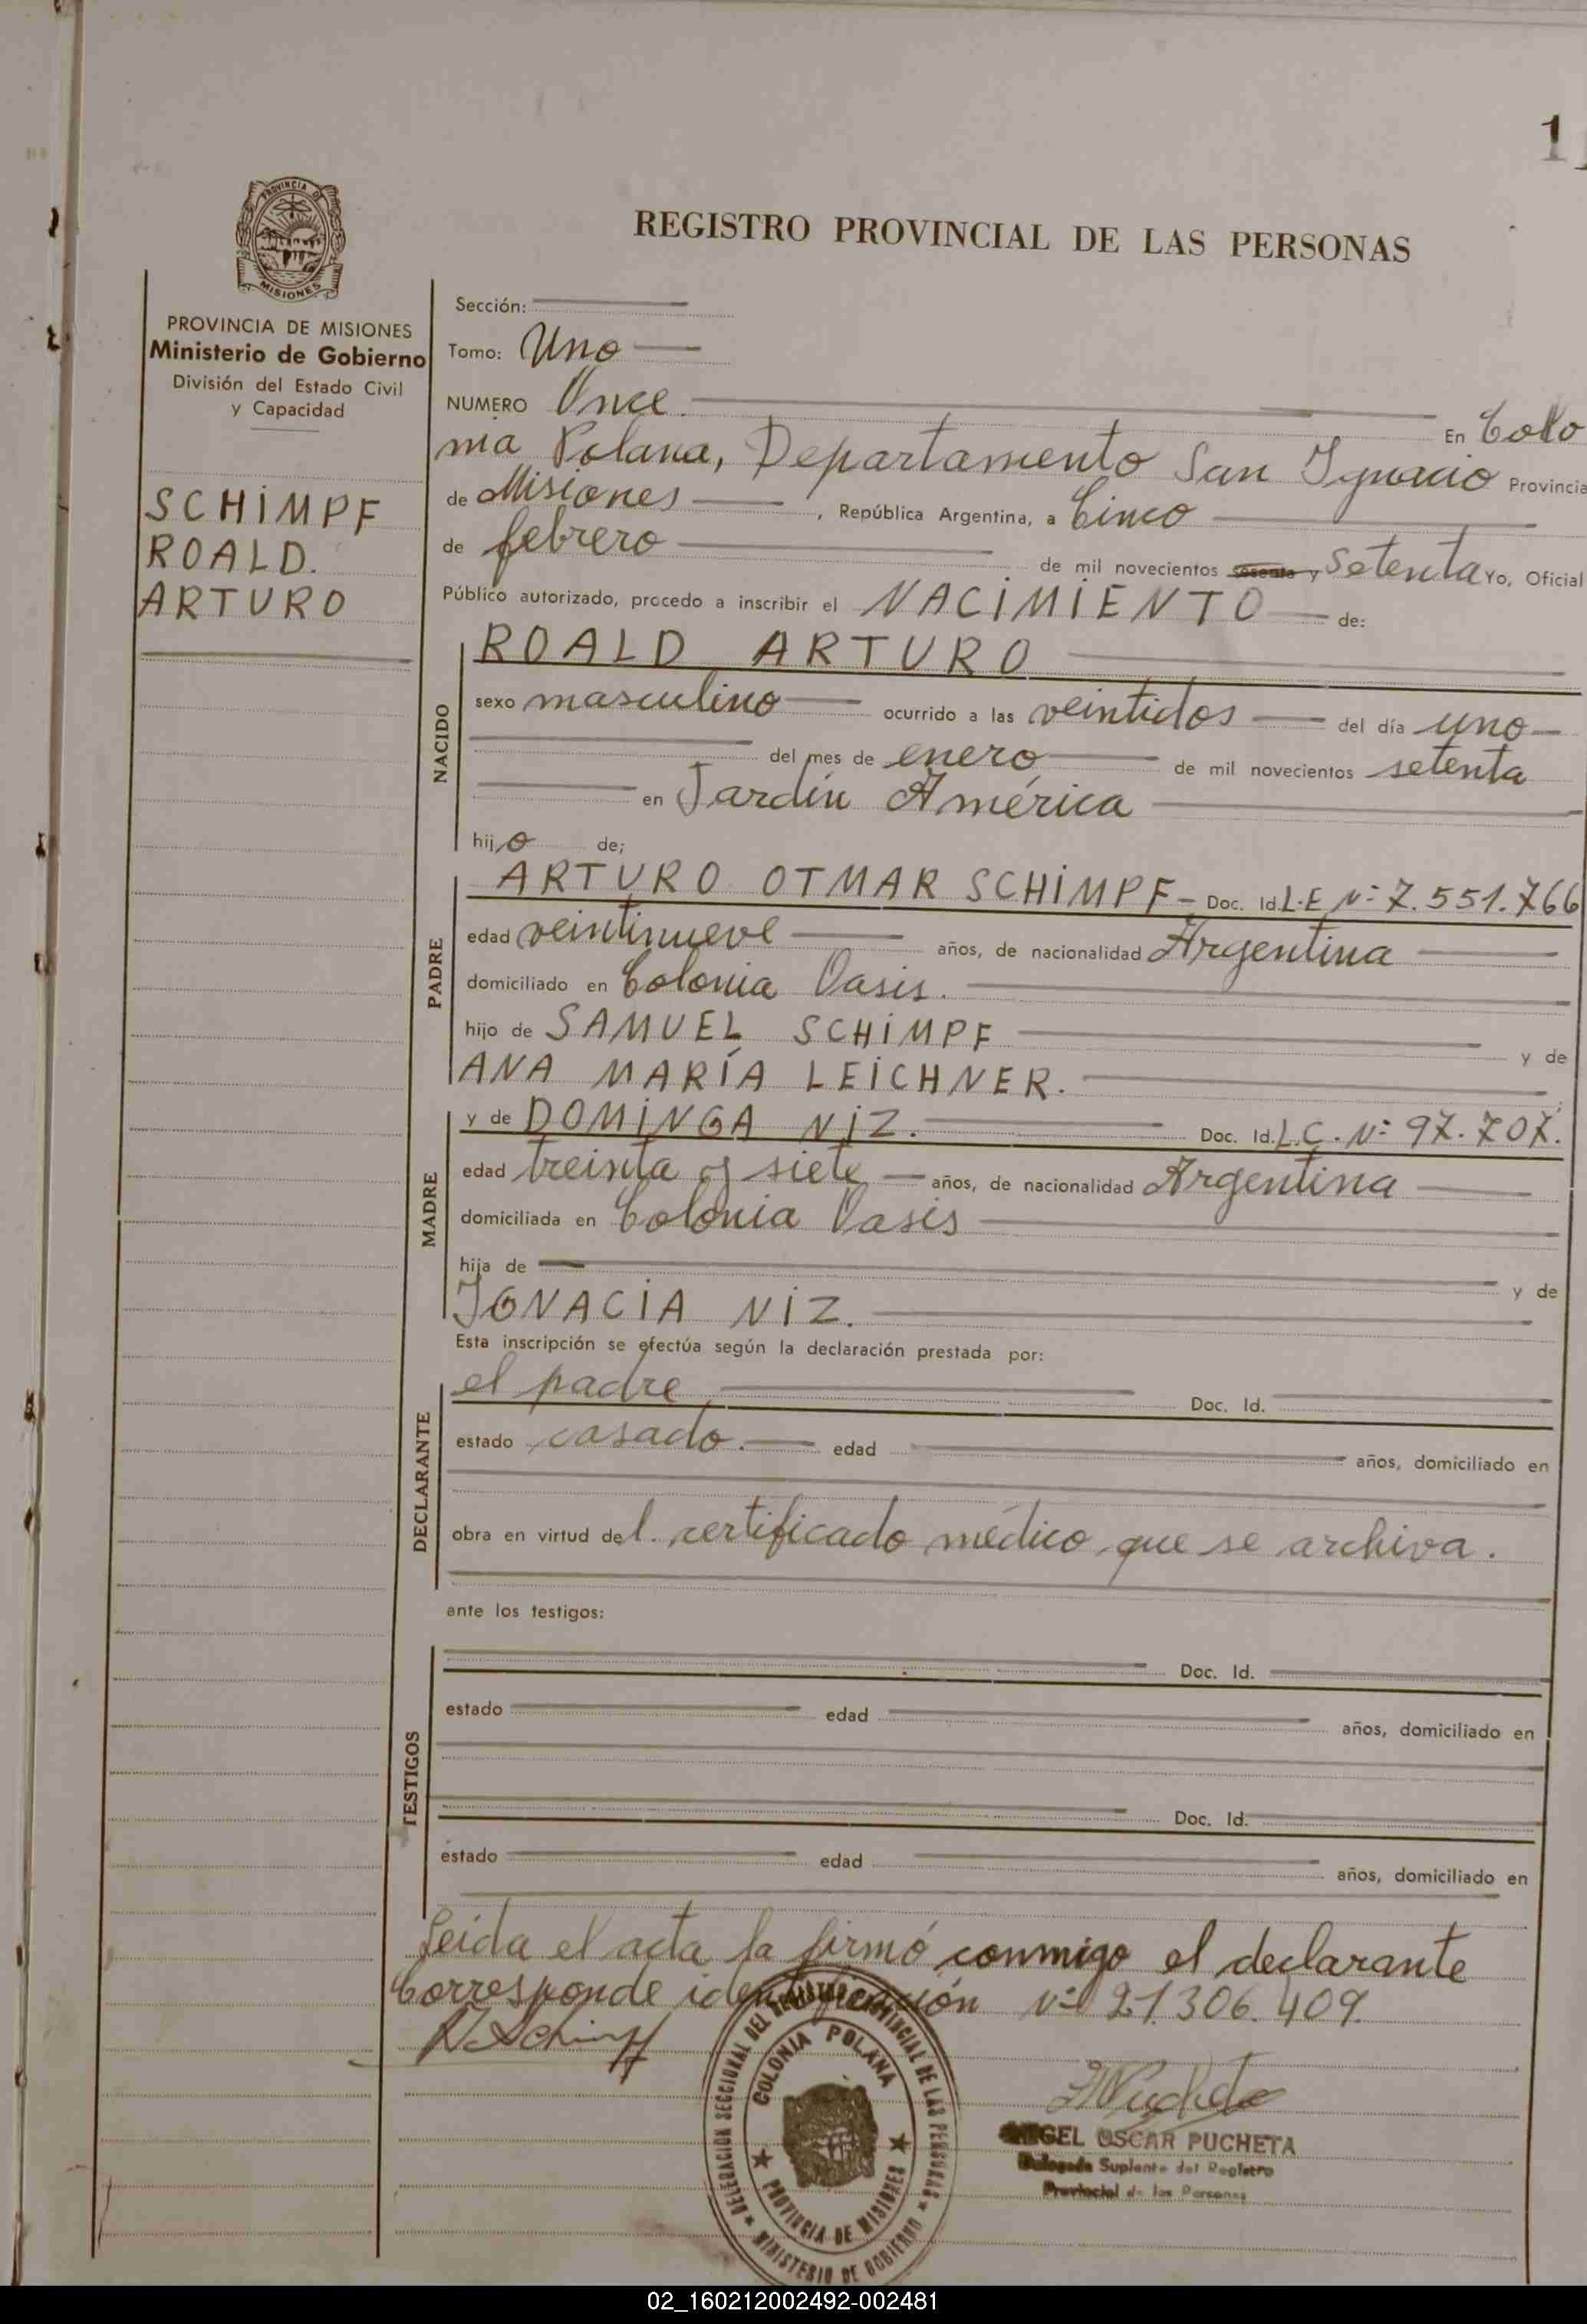 11
REGISTRO PROVINCIAL DE LAS PERSONAS
PROVINCIA DE MISIONES
PROVINCIA DE MISIONES
Ministerio de Gobierno
División del Estado Civil
y Capacidad
SCHIMPF
ROALD.
ARTURO
Sección:
Tomo: Uno
NUMERO Once. En Colo
nia Polana, Departamento San Ignacio Provincia
de Misiones, República Argentina, a Cinco
de febrero de mil novecientos sesenta y Setenta Yo, Oficial
Público autorizado, procedo a inscribir el NACIMIENTO de:
NACIDO
ROALD ARTURO
sexo masculino ocurrido a las veintidos del día uno
del mes de enero de mil novecientos setenta
en Jardín América
hijo de;
PADRE
ARTURO OTMAR SCHIMPF- Doc. Id. L.E Nº 7.551.766
edad veintinueve años, de nacionalidad Argentina
domiciliado en Colonia Oasis.
hijo de SAMUEL SCHIMPF y de
ANA MARÍA LEICHNER.
MADRE
y de DOMINGA NIZ. Doc. Id. L.C. Nº 97.707.
edad treinta y siete años, de nacionalidad Argentina
domiciliada en Colonia Oasis
hija de y de
IGNACIA NIZ.
Esta inscripción se efectúa según la declaración prestada por:
DECLARANTE
el padre Doc. Id.
estado casado. edad años, domiciliado en
obra en virtud del. certificado médico que se archiva.
ante los testigos:
TESTIGOS
Doc. Id.
estado edad años, domiciliado en
Doc. Id.
estado edad años, domiciliado en
Leida el acta la firmó conmigo el declarante
Corresponde identificación Nº 21.306.409.
DELEGACION SECCIONAL DEL REGISTRO PROVINCIAL DE LAS PERSONAS
COLONIA POLANA
PROVINCIA DE MISIONES
MINISTERIO DE GOBIERNO
ANGEL OSCAR PUCHETA
Delegado Suplente del Registro
Provincial de las Personas
02_160212002492-002481